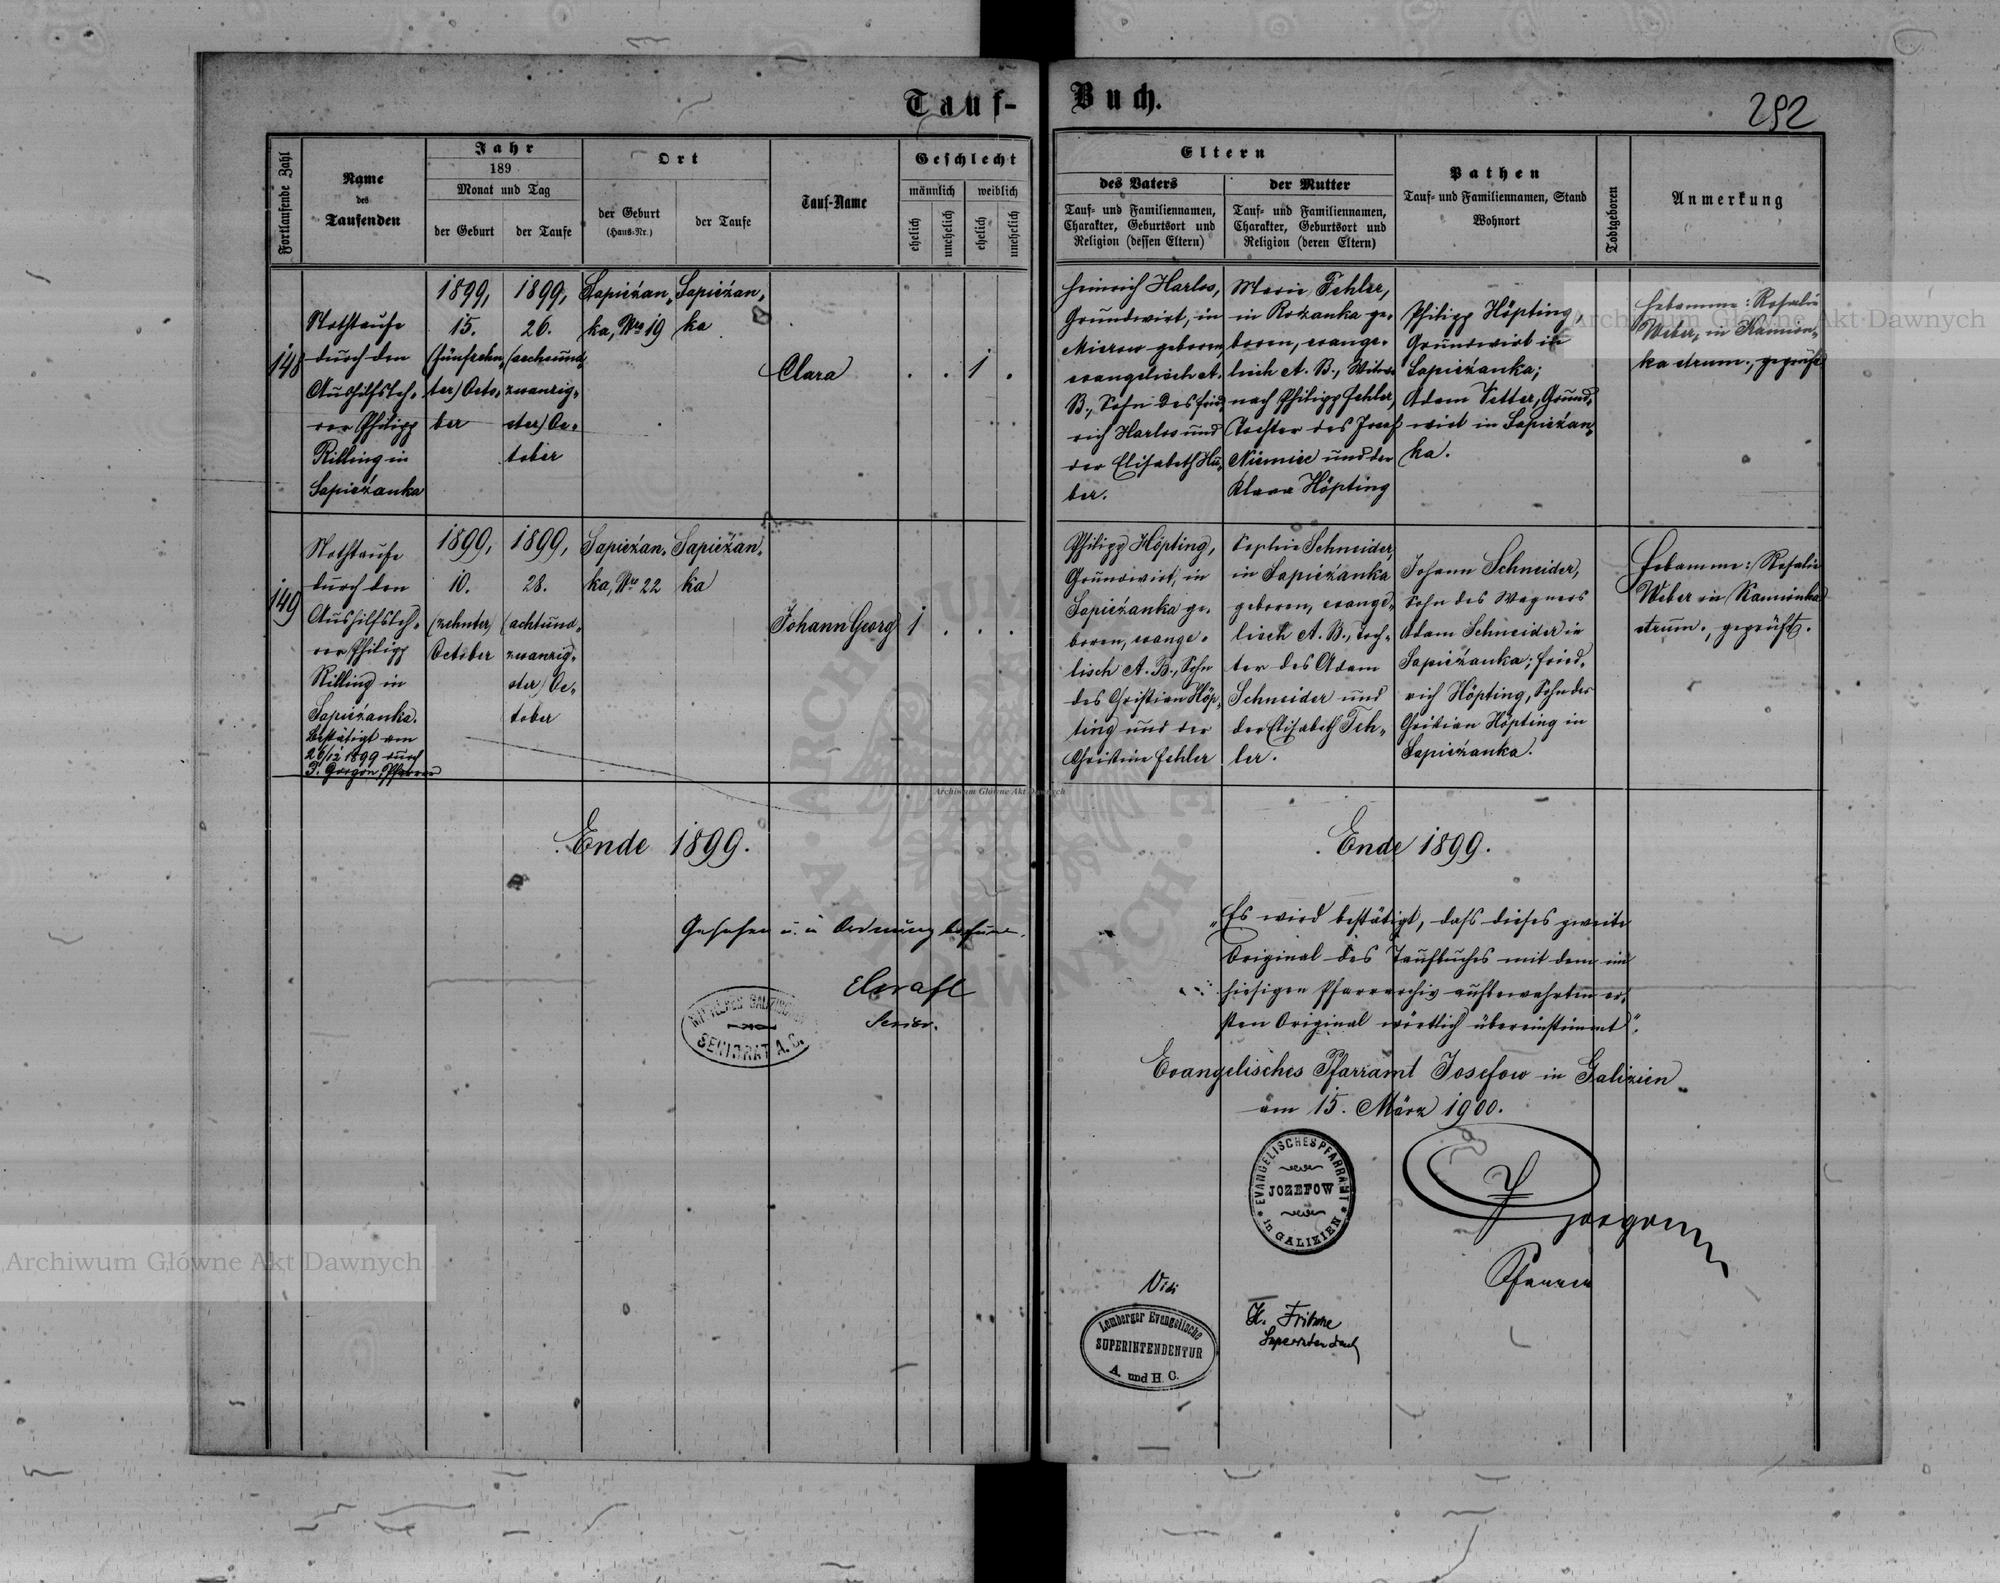 Tauf-
Buch.
292
Fortlaufende Zahl
Name
des
Taufenden
Jahr
189
Monat und Tag
der Geburt
der Taufe
Ort
der Geburt
(Haus-Nr.)
der Taufe
Tauf-Name
Geschlecht
männlich
weiblich
ehelich
unehelich
ehelich
unehelich
Eltern
des Vaters
Tauf- und Familiennamen,
Charakter, Geburtsort und
Religion (dessen Eltern)
der Mutter
Tauf- und Familiennamen,
Charakter, Geburtsort und
Religion (deren Eltern)
Pathen
Tauf- und Familiennamen, Stand
Wohnort
Todtgeboren
Anmerkung
148
Nothtaufe
durch den
Aushilfsleh-
rer Philipp
Rilling in
Sapieżanka
1899,
15.
(fünfzehn-
ter) Octo-
ber
1899,
26.
(sechsund-
zwanzig-
ster) Oc-
tober
Sapieżan-
ka, Nro 19
Sapieżan-
ka
Clara
. . 1 .
Heinrich Harlos,
Grundwirt, in
Mierow geboren,
evangelisch A.
B., Sohn des Fried-
rich Harlos und
der Elisabeth Hu-
ber.
Marie Fehler,
in Rożanka ge-
boren, evange-
lisch A. B., Witwe
nach Philipp Fehler,
Tochter des Josef
Niemiec und der
Klara Höpting
Philipp Höpting,
Grundwirt in
Sapieżanka;
Adam Vetter, Grund-
wirt in Sapieżan-
ka.
Hebamme: Rosalie
Weber, in Kamion-
ka strum., geprüft
149
Nothtaufe
durch den
Aushilfsleh-
rer Philipp
Rilling in
Sapieżanka.
Bestätigt am
26/12 1899 durch
J. Gorgon, Pfarrer
1899,
10.
(zehnter)
October
1899,
28.
(achtund-
zwanzig-
ster) Oc-
tober
Sapieżan-
ka, Nro 22
Sapieżan-
ka
Johann Georg
1 . . .
Philipp Höpting,
Grundwirt, in
Sapieżanka ge-
boren, evange-
lisch A. B., Sohn
des Christian Höp-
ting und der
Christine Fehler
Sophie Schneider,
in Sapieżanka
geboren, evange-
lisch A. B., Toch-
ter des Adam
Schneider und
der Elisabeth Feh-
ler.
Johann Schneider,
Sohn des Wagners
Adam Schneider in
Sapieżanka; Fried-
rich Höpting, Sohn des
Christian Höpting in
Sapieżanka.
Hebamme: Rosalie
Weber in Kamionka
strum., geprüft.
Ende 1899.
Ende 1899.
Gesehen u. in Ordnung befunden.
Senior.
MITTLERES GALIZISCHES
SENIORAT A. C.
„Es wird bestätigt, dass dieses zweite
Original des Taufbuches mit dem im
hiesigen Pfarrarchiv aufbewahrten er-
sten Original wörtlich übereinstimmt".
Evangelisches Pfarramt Josefow in Galizien
am 15. März 1900.
EVANGELISCHES PFARRAMT
JOZEFOW
in GALIZIEN
J Gorgon
Pfarrer
Vidi
Lemberger Evangelische
SUPERINTENDENTUR
A. und H. C.
Superintendent
Archiwum Główne Akt Dawnych
Archiwum Główne Akt Dawnych
Archiwum Główne Akt Dawnych